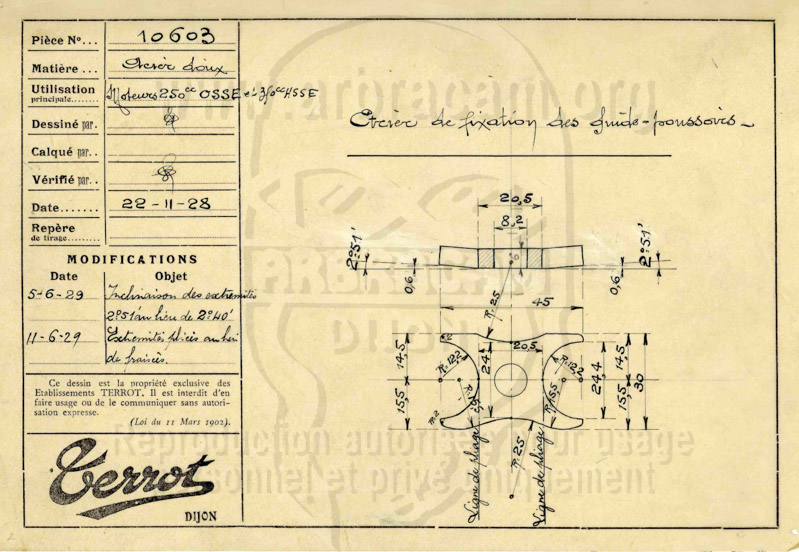 Pièce No... 10603
Matière... Acier doux
Utilisation principale........ Moteurs 250cc OSSE et 350cc HSSE
Dessiné par.
Calqué par..
Vérifié par..
Date....... 22-11-28
Repère de tirage.........
MODIFICATIONS
Date Objet
5-6-29 Inclinaison des extremités
2°51 au lieu de 2°40'
11-6-29 Extremités pliées au lieu
de fraisées.
Ce dessin est la propriété exclusive des
Etablissements TERROT. Il est interdit d'en
faire usage ou de le communiquer sans autori-
sation expresse.
(Loi du 11 Mars 1902).
Terrot
DIJON
Etrier de fixation des guide-poussoirs
20,5
8,2
2°51'
2°51'
6
0,6
0,6
R.25
45
14,5
15,5
R.12,2
24,4
20,5
R.12,2
24,4
14,5
15,5
30
R.15,5
R.2
R.25
Ligne de pliage
Ligne de pliage
www.arbracam.org
ARBRACAM
DIJON
Reproduction autorisée pour usage
personnel et privé uniquement